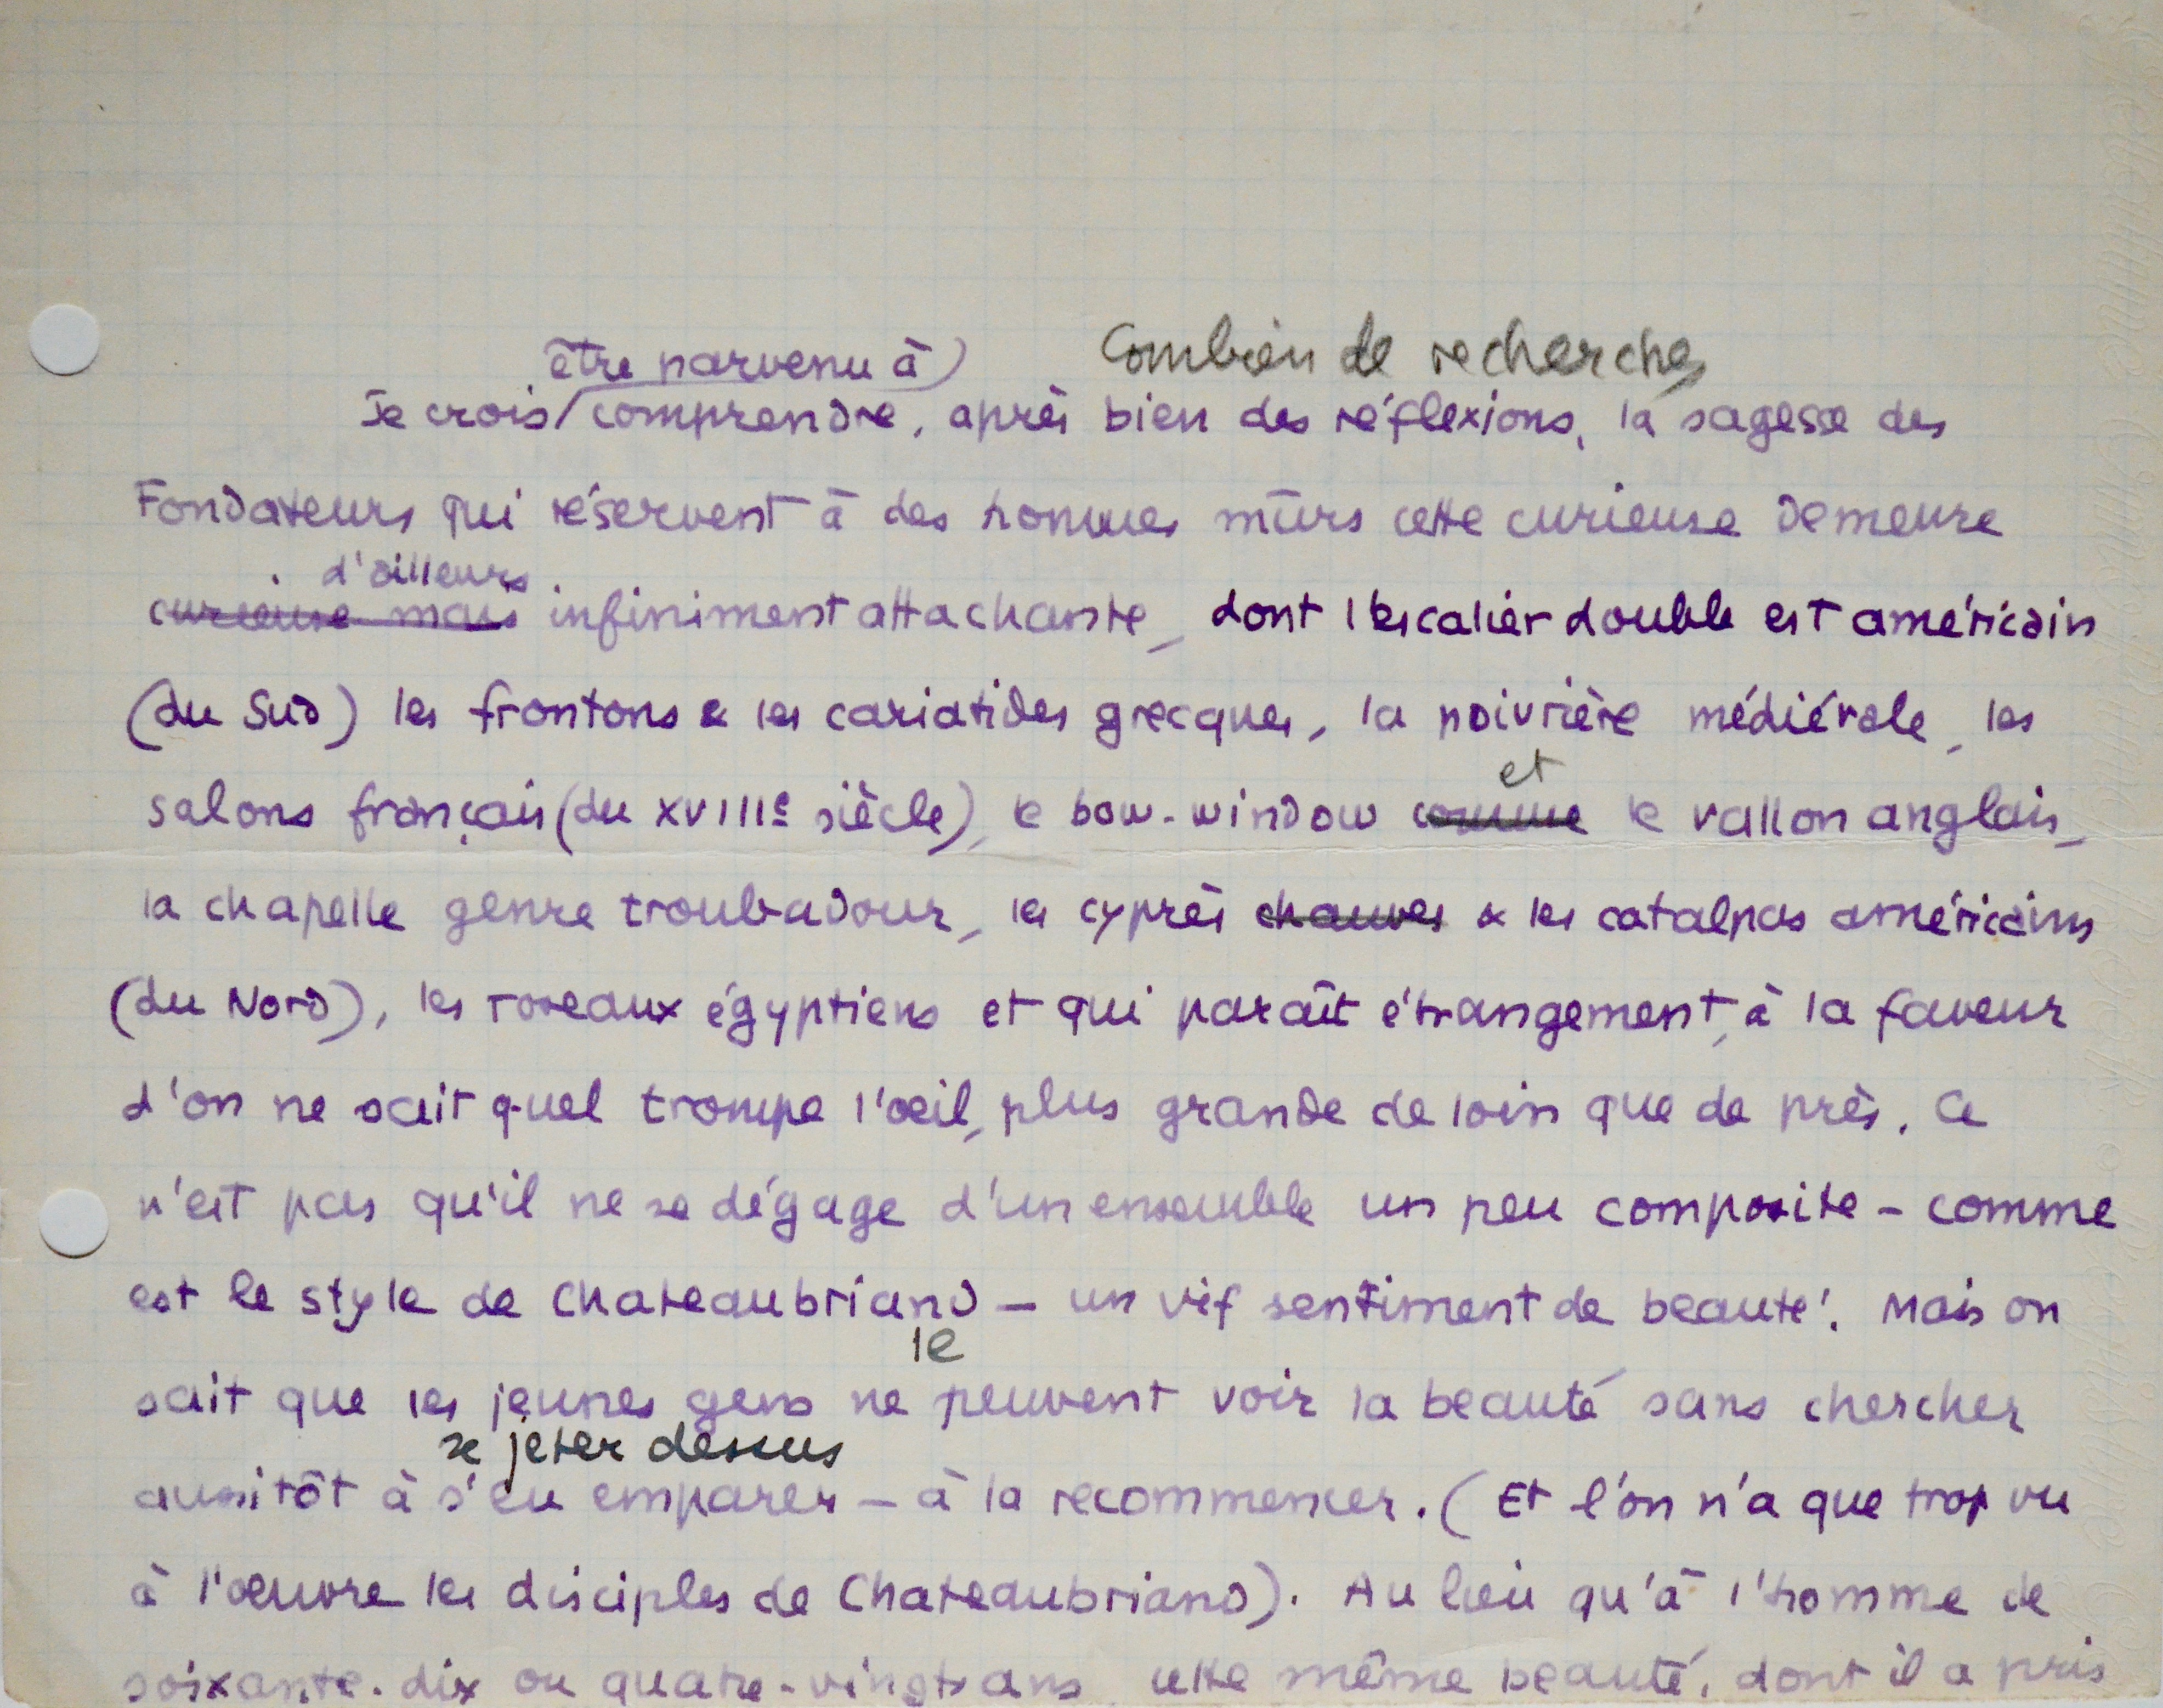 être parvenu à
Combien de recherches
Je crois comprendre, après bien des réflexions, la sagesse des
Fondateurs qui réservent à des hommes mûrs cette curieuse demeure
d'ailleurs
curieuse mais infiniment attachante, dont l'escalier double est américain
(du Sud) les frontons & les cariatides grecques, la poivrière médiévale, les
et
salons français (du XVIIIe siècle), le bow-window comme le vallon anglais,
la chapelle genre troubadour, les cyprès chauves & les catalpas américains
(du Nord), les roseaux égyptiens et qui paraît étrangement, à la faveur
d'on ne sait quel trompe l'oeil, plus grande de loin que de près. Ce
n'est pas qu'il ne se dégage d'un ensemble un peu composite - comme
est le style de Chateaubriand - un vif sentiment de beauté. Mais on
le
sait que les jeunes gens ne peuvent voir la beauté sans chercher
se jeter dessus
aussitôt à s'en emparer - à la recommencer. (Et l'on n'a que trop vu
à l'oeuvre les disciples de Chateaubriand). Au lieu qu'à l'homme de
soixante-dix ou quatre-vingts ans cette même beauté, dont il a pris